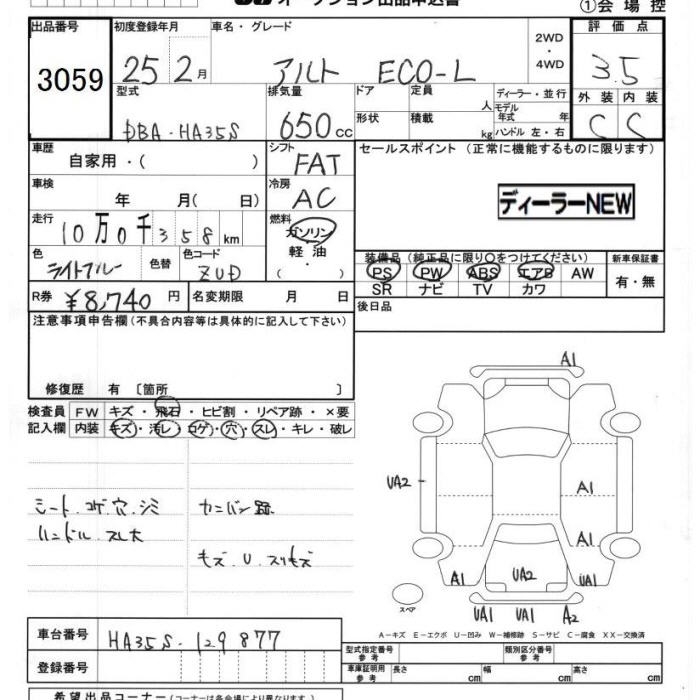 オークション出品申込書
①会場控
出品番号
3059
初度登録年月
25 2月
車名・グレード
アルト ECO-L
2WD
・
4WD
評価点
3.5
外装 内装
C C
型式
DBA-HA35S
排気量
650cc
ドア
形状
定員
人
積載
kg
ディーラー・並行
モデル年式 年
ハンドル 左・右
車歴
自家用・( )
シフト
FAT
セールスポイント (正常に機能するものに限ります)
ディーラーNEW
車検
年 月( 日)
冷房
AC
走行
10万0千358km
燃料
ガソリン
・
軽油
・
( )
色
ライトブルー
色替
色コード
ZUD
装備品(純正品に限り○をつけてください)
PS PW ABS エアB AW
SR ナビ TV カワ
新車保証書
有・無
R券
¥8,740円
名変期限 月 日
後日品
注意事項申告欄(不具合内容等は具体的に記入して下さい)
修復歴 有 〔箇所 〕
検査員
記入欄
FW キズ・飛石・ヒビ割・リペア跡・×要
内装 キズ・汚レ・コゲ・穴・スレ・キレ・破レ
シート.コゲ.穴.シミ カンバン跡
ハンドル.スレ大
キズ.U.スリキズ
A1
UA2
A1
A1
A1
UA2
UA1
UA1
UA1
A2
スペア
A-キズ E-エクボ U-凹み W-補修跡 S-サビ C-腐食 XX-交換済
車台番号
HA35S-129877
登録番号
型式指定番号
参考
類別区分番号
参考
車庫証明用
参考
長さ cm
幅 cm
高さ cm
希望出品コーナー(コーナーは各会場により異なります。)